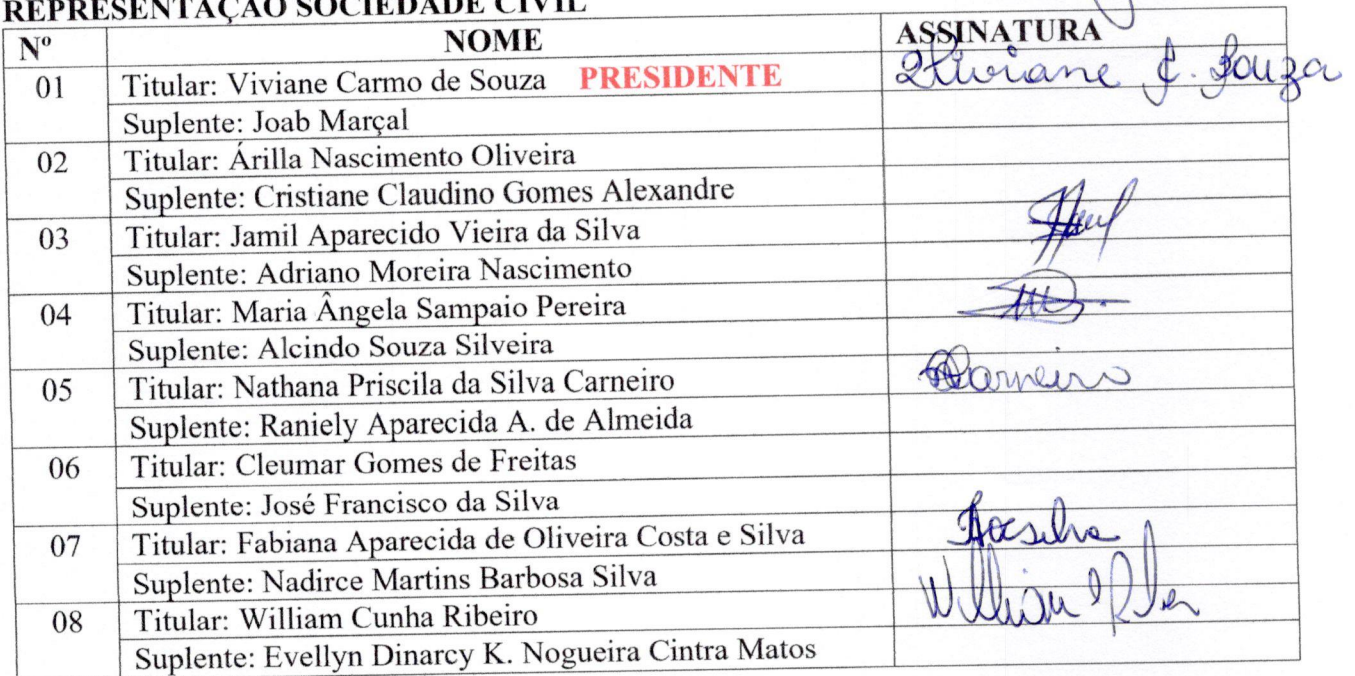 REPRESENTAÇÃO SOCIEDADE CIVIL
Nº NOME ASSINATURA
01 Titular: Viviane Carmo de Souza PRESIDENTE Viviane C. Souza
Suplente: Joab Marçal
02 Titular: Árilla Nascimento Oliveira
Suplente: Cristiane Claudino Gomes Alexandre
03 Titular: Jamil Aparecido Vieira da Silva
Suplente: Adriano Moreira Nascimento
04 Titular: Maria Ângela Sampaio Pereira
Suplente: Alcindo Souza Silveira
05 Titular: Nathana Priscila da Silva Carneiro Carneiro
Suplente: Raniely Aparecida A. de Almeida
06 Titular: Cleumar Gomes de Freitas
Suplente: José Francisco da Silva
07 Titular: Fabiana Aparecida de Oliveira Costa e Silva
Suplente: Nadirce Martins Barbosa Silva
08 Titular: William Cunha Ribeiro William
Suplente: Evellyn Dinarcy K. Nogueira Cintra Matos